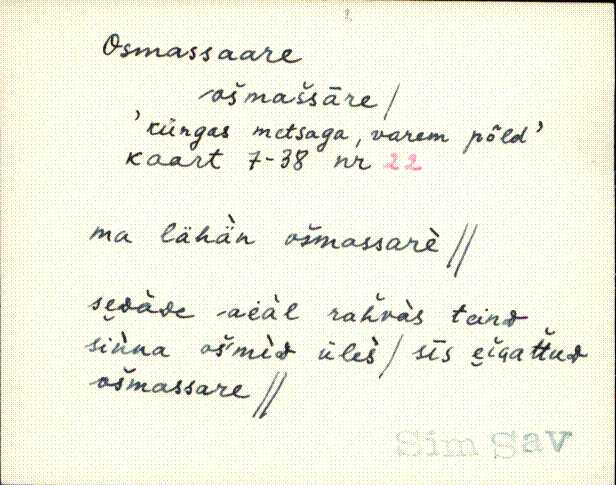 Osmassaare
ošmaššāre /
'kürgas metsaga, varem põld'
kaart 7-38 nr 22
ma lähàn ošmassarè //
sedàde aiàl rahvàs teind
sinna ošmìd ülès / sīs eigattud
ošmassare //
Sim Sav